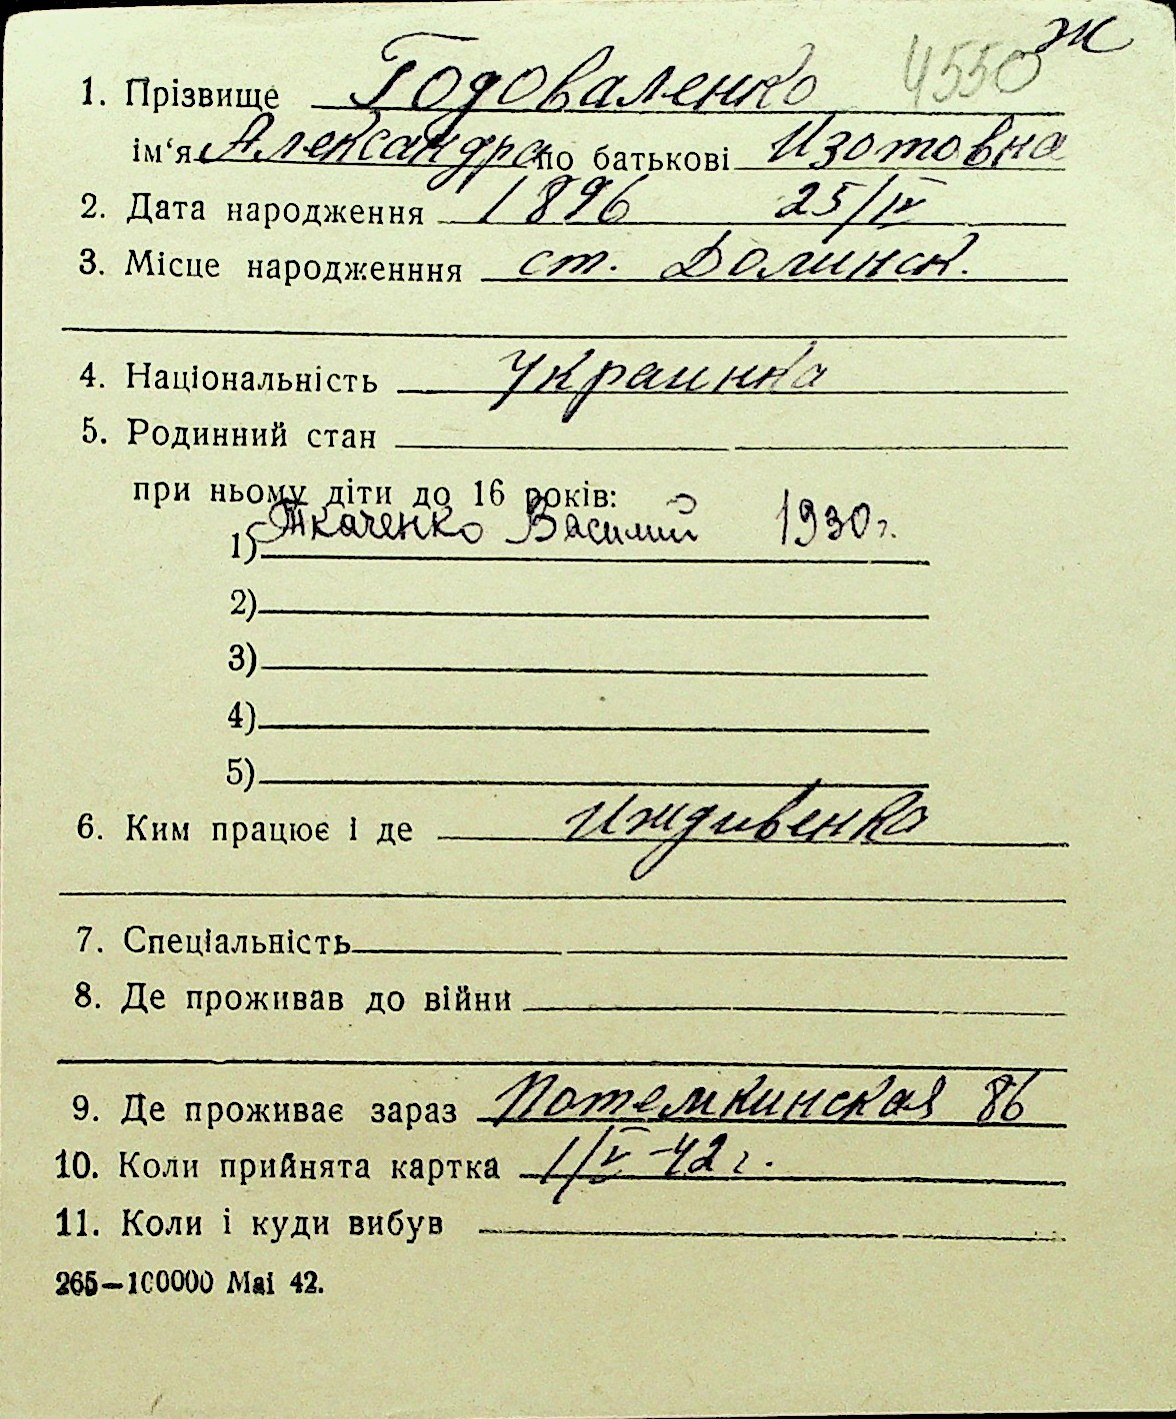 ж
4550
1. Прізвище Годоваленко
ім‘я Александра по батькові Изотовна
2. Дата народження 1896 25/IV
3. Місце народженння ст. Долинск.
4. Національність Украинка
5. Родинний стан
при ньому діти до 16 років:
1) Ткаченко Василий 1930 г.
2)
3)
4)
5)
6. Ким працює і де Иждивенка
7. Спеціальність
8. Де проживав до війни
9. Де проживає зараз Потемкинская 86
10. Коли прийнята картка 1/V-42 г.
11. Коли і куди вибув
265—100000 Mai 42.